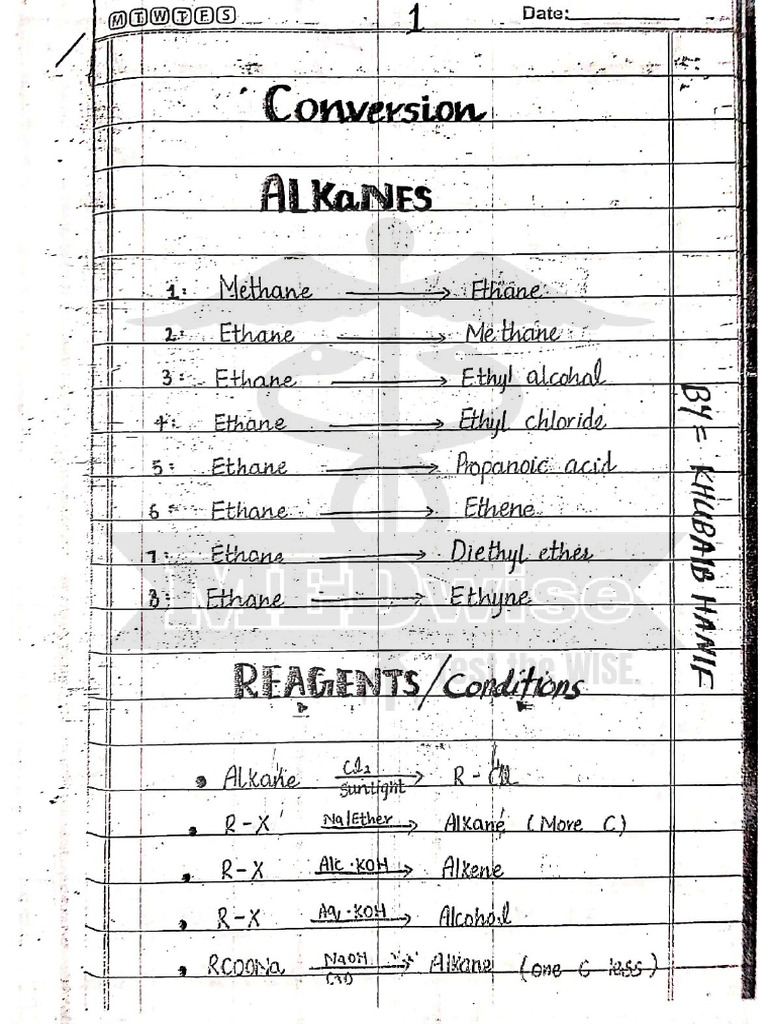 M T W T F S
1
Date:
Conversion
ALKaNES
1: Methane → Ethane
2: Ethane → Methane
3: Ethane → Ethyl alcohal
4: Ethane → Ethyl chloride
5: Ethane → Propanoic acid
6: Ethane → Ethene
7: Ethane → Diethyl ether
8: Ethane → Ethyne
MEDwise
Test the WISE.
REAGENTS/Conditions
• Alkane Cl₂ Sunlight → R-Cl
• R-X Na/Ether → Alkane (More C)
• R-X Alc.KOH → Alkene
• R-X Aq.KOH → Alcohol
• RCOONa NaOH → Alkane (one C less)
BY = KHUBAIB HANIF